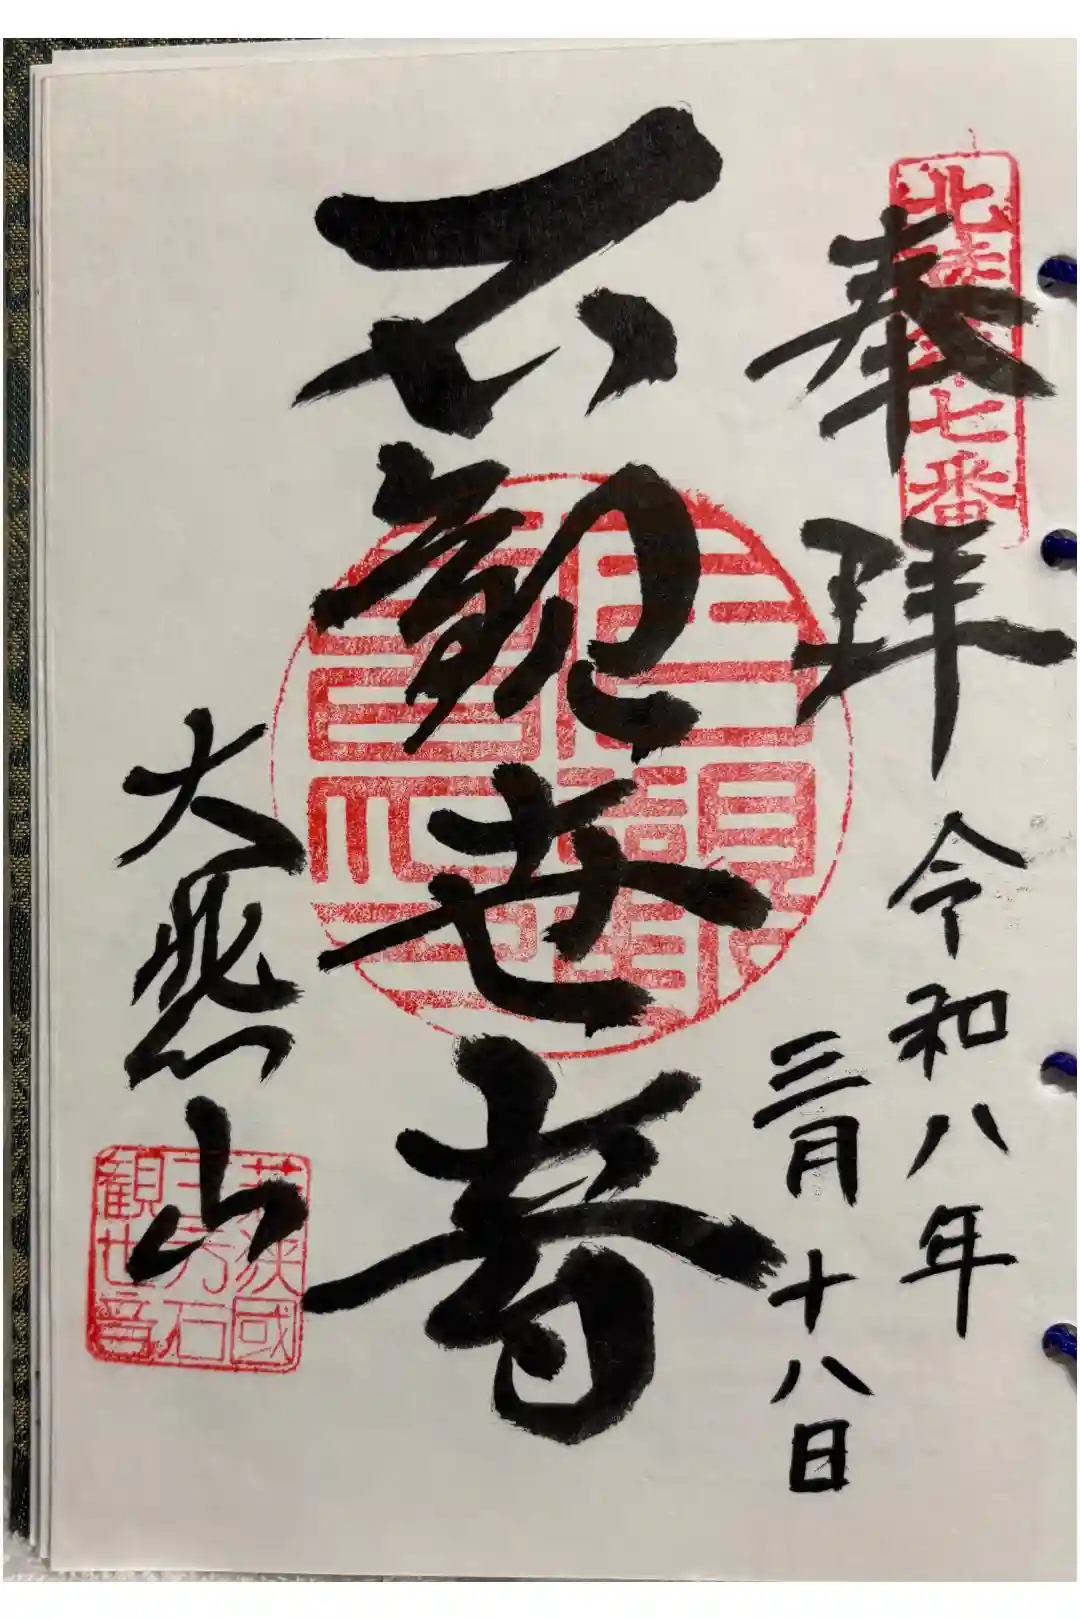 北陸 七番
奉拝
令和八年
三月十八日
石観世音
大悲山
若狭國
三方石
観世音